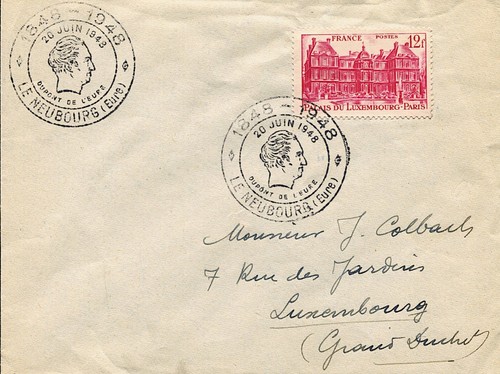 1848 - 1948
20 JUIN 1948
DUPONT DE L'EURE
LE NEUBOURG (Eure)
FRANCE POSTES 12f
PALAIS DU LUXEMBOURG-PARIS
1848 - 1948
20 JUIN 1948
DUPONT DE L'EURE
LE NEUBOURG (Eure)
Monsieur J. Colbach
7 Rue des Jardins
Luxembourg
(Grand Duché)